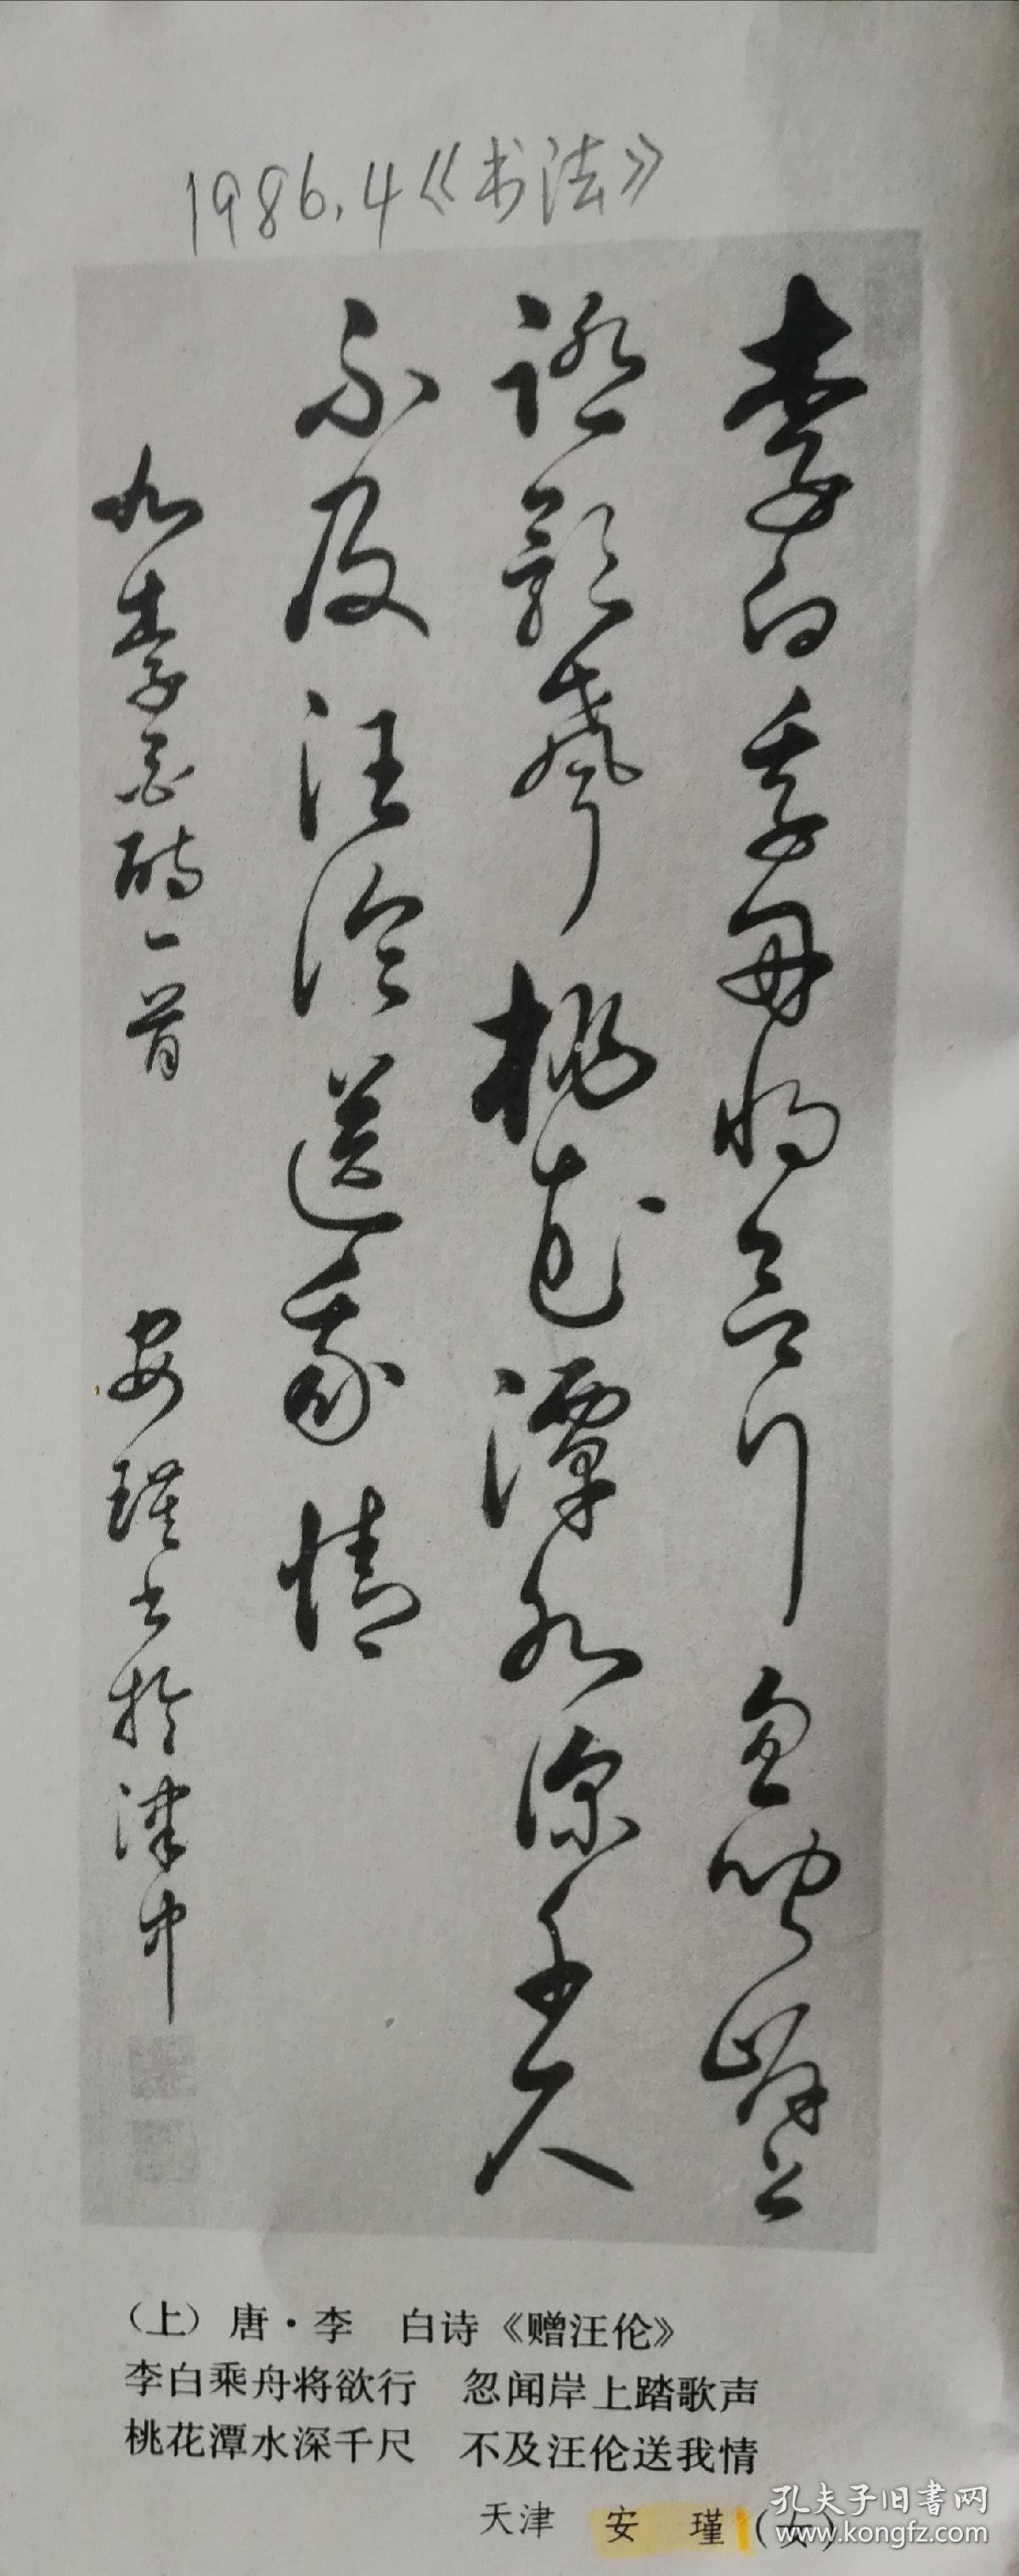 1986.4《书法》
李白乘舟将欲行忽闻岸上
踏歌声桃花潭水深千尺
不及汪伦送我情
李白诗一首 安瑾书於津中
（上）唐·李 白诗《赠汪伦》
李白乘舟将欲行 忽闻岸上踏歌声
桃花潭水深千尺 不及汪伦送我情
天津 安 瑾（女）
孔夫子旧书网
www.kongfz.com